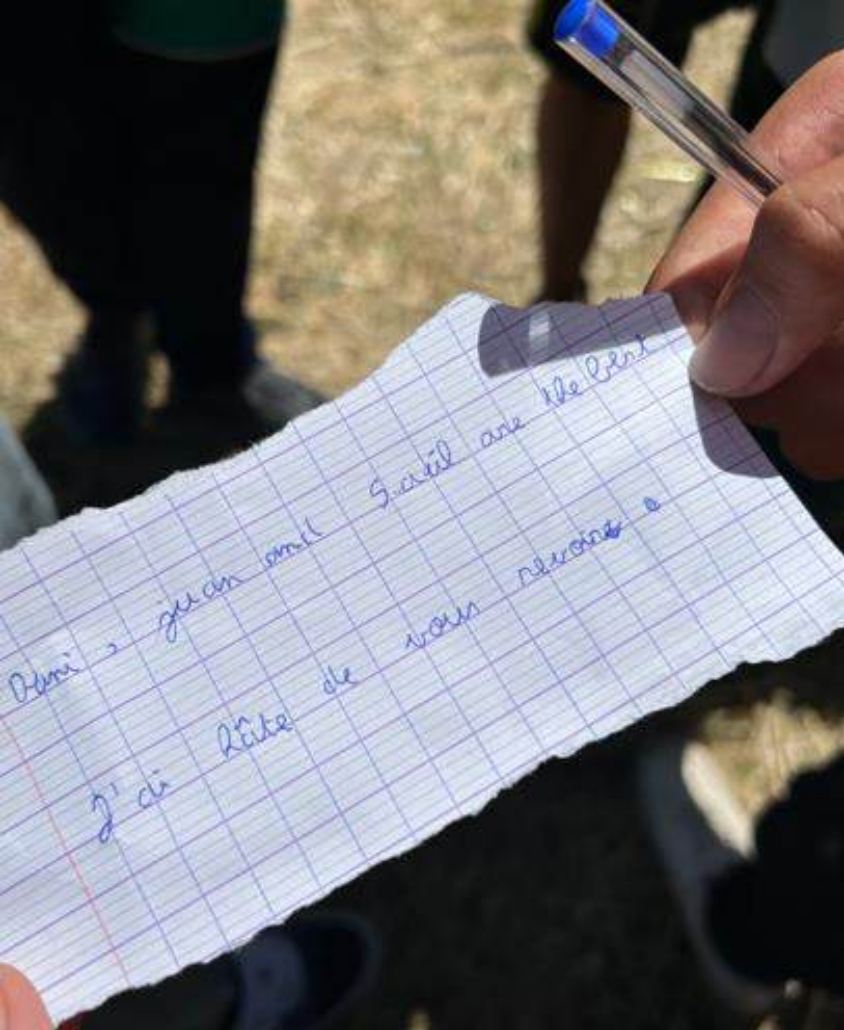 Dani, juan and Small are the best
J'ai hâte de vous revoir